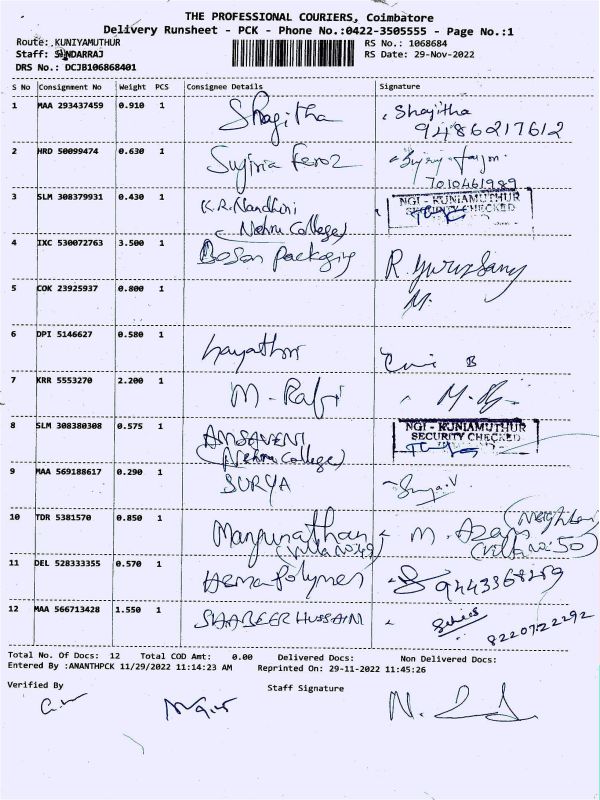 THE PROFESSIONAL COURIERS, Coimbatore
Delivery Runsheet - PCK - Phone No.:0422-3505555 - Page No.:1
Route: KUNIYAMUTHUR
RS No.: 1068684
Staff: SUNDARRAJ
RS Date: 29-Nov-2022
DRS No.: DCJB106868401
S No Consignment No Weight PCS Consignee Details Signature
1 MAA 293437459 0.910 1 Shagitha Shajitha
9486217612
2 HRD 50099474 0.630 1 Feroz
7010461989
3 SLM 308379931 0.430 1 K.R. Nandhini NGI - KUNIAMUTHUR
(Nehru College) SECURITY CHECKED
4 IXC 530072763 3.500 1 Bosan Packaging R.
5 COK 23925937 0.800 1 M.
6 DPI 5146627 0.580 1 B
7 KRR 5553270 2.200 1 M. Rafi M.
8 SLM 308380308 0.575 1 AMSAVENI NGI - KUNIAMUTHUR
(Nehru College) SECURITY CHECKED
9 MAA 569188617 0.290 1 SURYA Surya.V
10 TDR 5381570 0.850 1 Manjunathan M. Azam (Neighbour)
(Villa No: 49) (Villa no: 50)
11 DEL 528333355 0.570 1 Hema Polymer
12 MAA 566713428 1.550 1 SHABEER HUSSAIN
8220722292
Total No. Of Docs: 12 Total COD Amt: 0.00 Delivered Docs: Non Delivered Docs:
Entered By :ANANTHPCK 11/29/2022 11:14:23 AM Reprinted On: 29-11-2022 11:45:26
Verified By Staff Signature